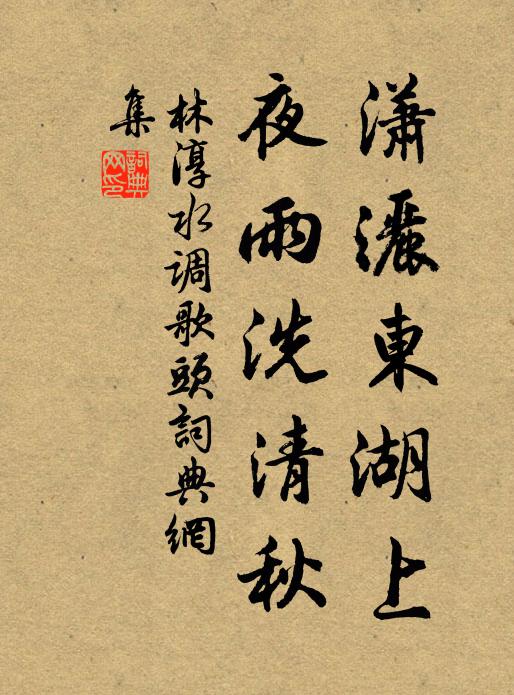 瀟灑東湖上
夜雨洗清秋
林淳水调歌頭詞典網
集
詞典网印